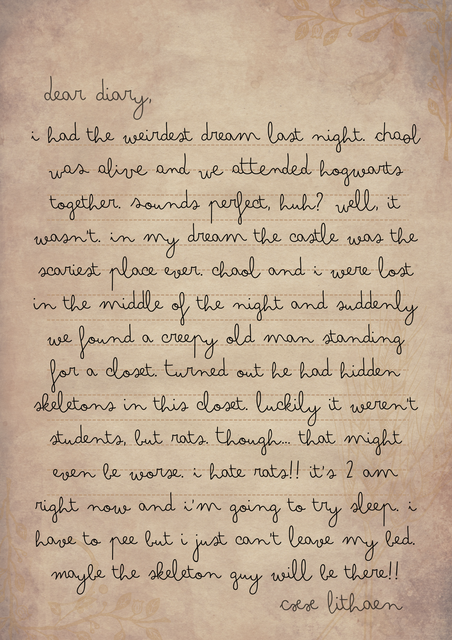 dear diary,
i had the weirdest dream last night. chaol
was alive and we attended hogwarts
together. sounds perfect, huh? well, it
wasn't. in my dream the castle was the
scariest place ever. chaol and i were lost
in the middle of the night and suddenly
we found a creepy old man standing
for a closet. turned out he had hidden
skeletons in this closet. luckily it weren't
students, but rats. though... that might
even be worse. i hate rats!! it's 2 am
right now and i'm going to try sleep. i
have to pee but i just can't leave my bed.
maybe the skeleton guy will be there!!
lithaen